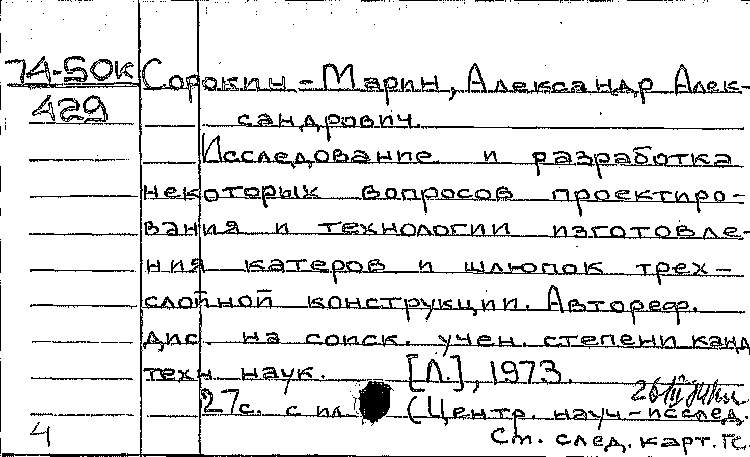 74-50к Сорокин-Марин, Александр Алек-
429 сандрович.
Исследование и разработка
некоторых вопросов проектиро-
вания и технологии изготовле-
ния катеров и шлюпок трех-
слойной конструкции. Автореф.
дис. на соиск. учен. степени канд
техн наук. [Л.], 1973.
27с. с ил (Центр. науч-исслед.
4 См. след. карт.